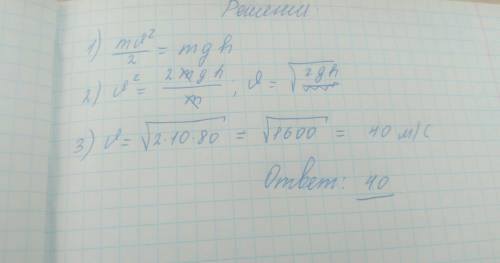 Решение
1) mϑ²/2 = mgh
2) ϑ² = 2mgh/m ; ϑ = √2gh
3) ϑ = √2·10·80 = √1600 = 40 м/с
Ответ: 40